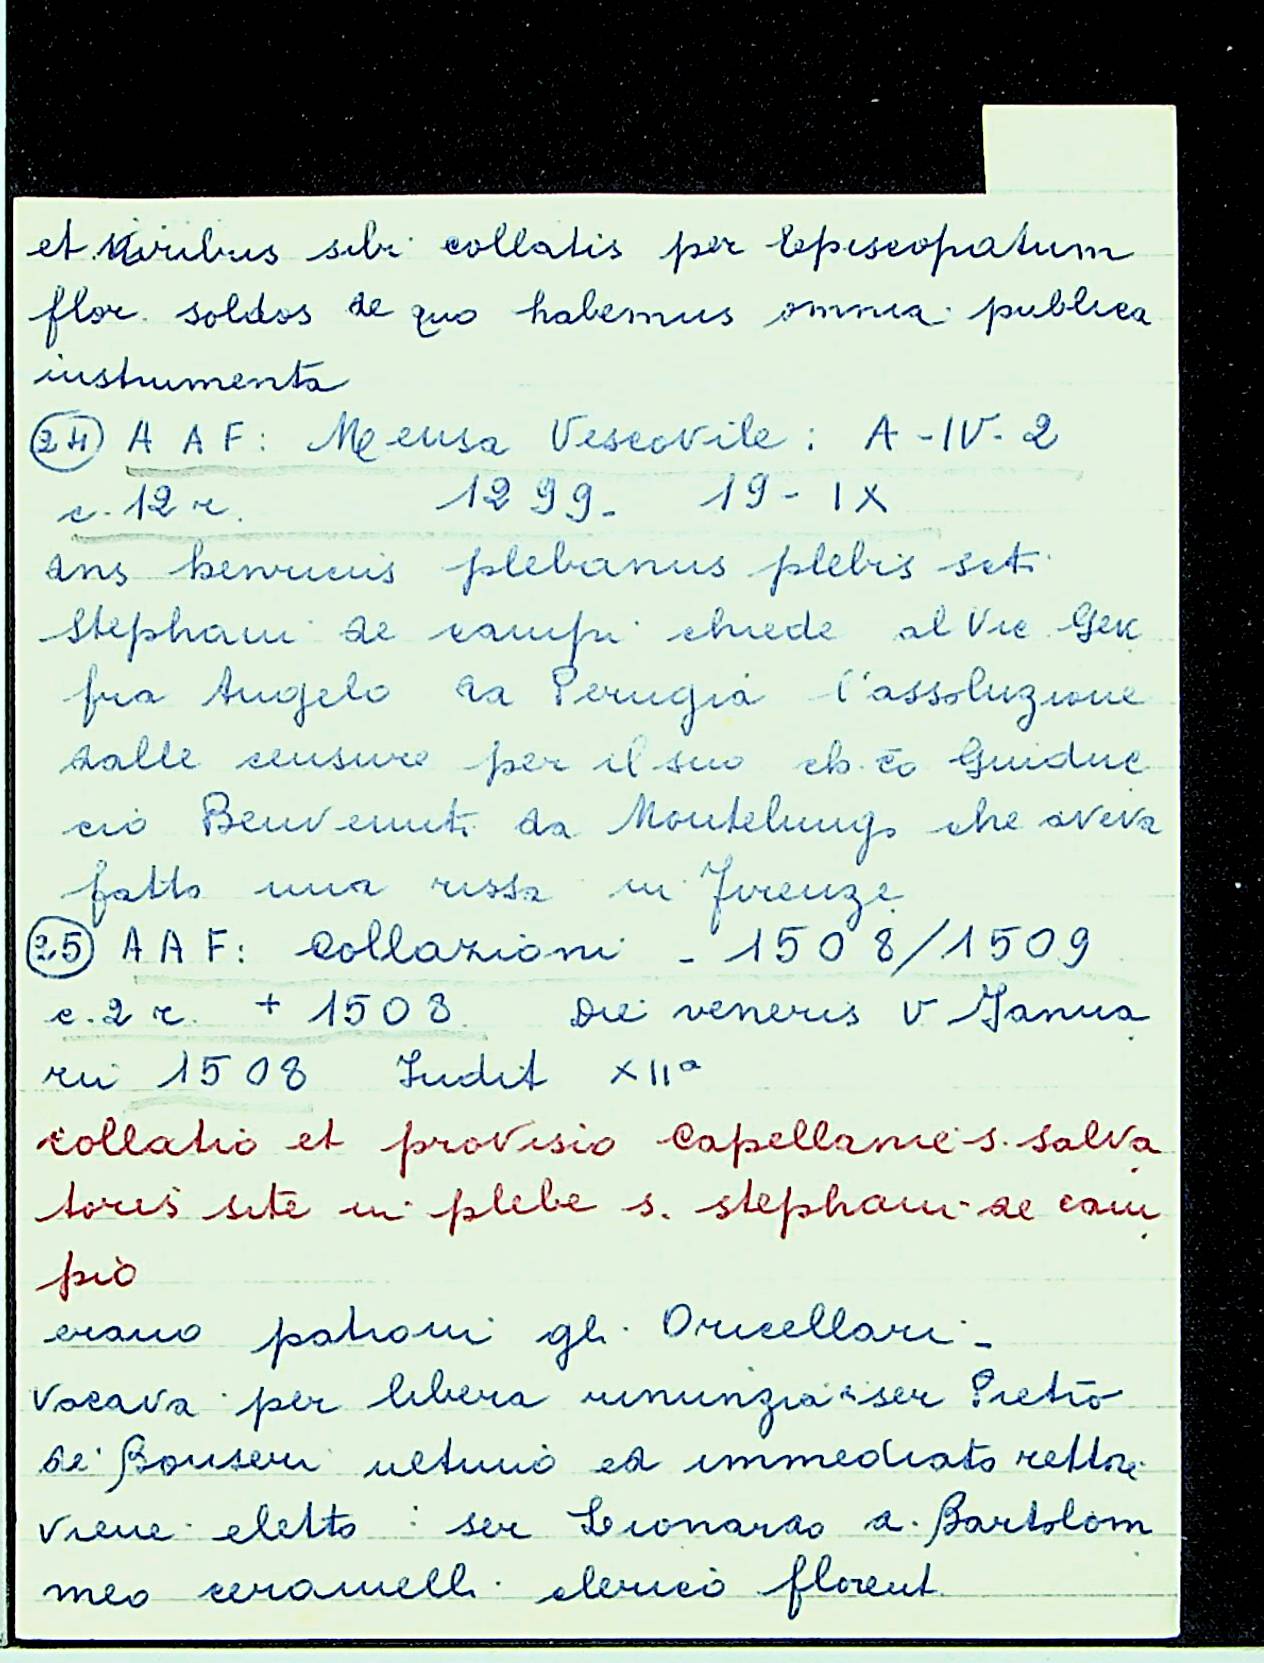 et viribus sibi collatis per Episcopatum
flor. soldos de quo habemus omnia publica
instrumenta
24 A A F: Mensa Vescovile: A-IV-2
c. 12 r. 1299- 19-IX
dns henricus plebanus plebis scti
Stephani de campi chiede al Vic Gen
fra Angelo da Perugia l'assoluzione
dalle censure per il suo ch.co Guiduc
cio Benvenuti da Montelungo che aveva
fatto una rissa in Firenze
25 A A F: Collazioni - 1508/1509
c. 2 r. + 1508 Die veneris V Janua
rii 1508 Indit XIIª
collatio et provisio Capellanie s. Salva
toris site in plebe s. stephani de cam
pio
erano patroni gli Oricellari -
vacava per libera rinunzia ser Pietro
de' Bonseri ultimo ed immediato rettore
viene eletto: ser Lionardo d. Bartolom
meo ceramelli clerico florent.